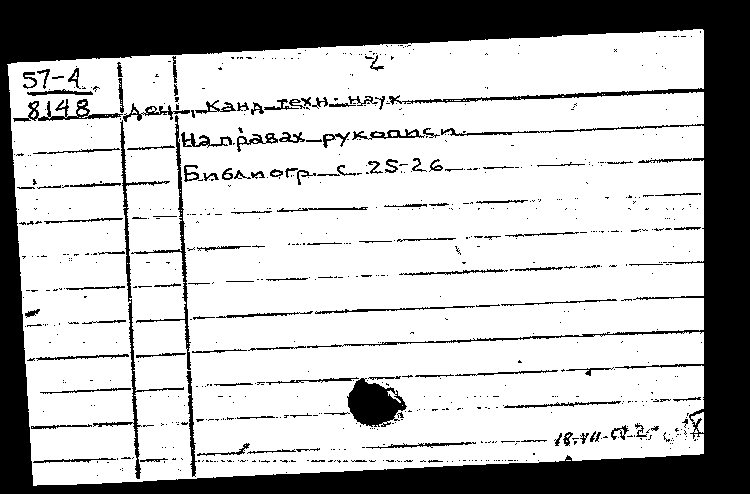 2
57-4
8148
доц., канд. техн. наук
На правах рукописи.
Библиогр. с. 25-26